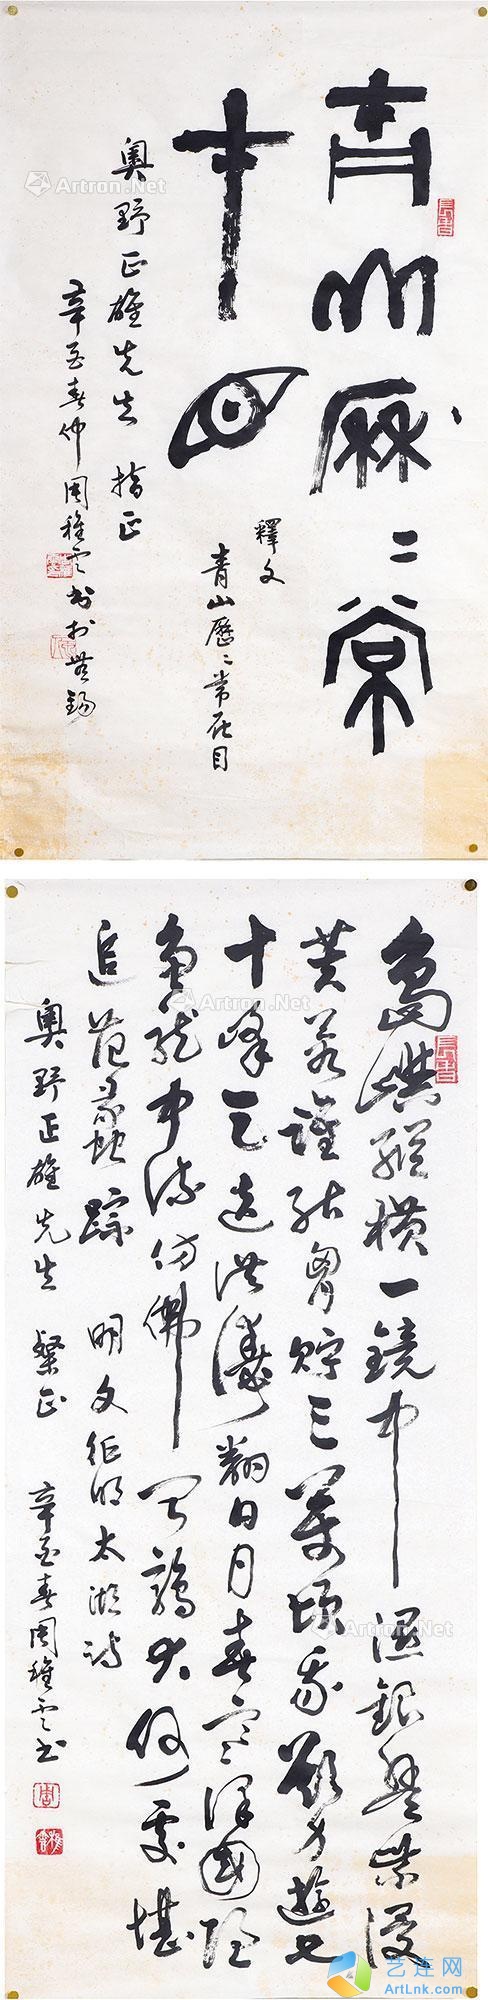 青山厤〻常
才目
釋文
青山歷〻常在目
奧野正雄先生 指正
辛酉春仲周稚雲书於無錫
島嶼縱橫一鏡中濕銀盤紫浸
芙蓉誰能胸貯三萬頃我欲身遊七
十峰天遠洪濤翻日月春寒澤國隱
魚龍中流仿佛聞鷄犬何處堪
追范蠡踪 明文征明太湖诗
奧野正雄先生 粲正 辛酉春周稚雲书
Artron.Net
Artron.Net
Artron.Net
Artron.Net
Artron.Net
艺连网
ArtLnk.com